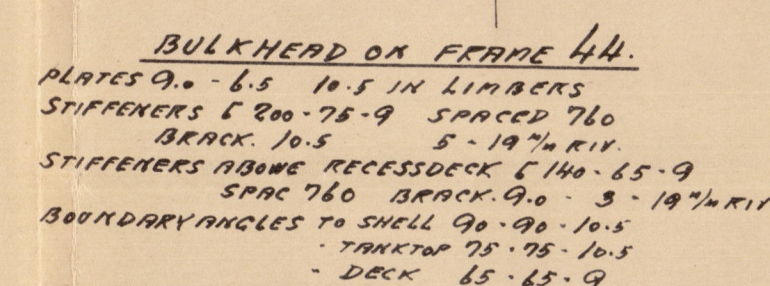 BULKHEAD ON FRAME 44.
PLATES 9.0 - 6.5 10.5 IN LIMBERS
STIFFENERS [ 200-75-9 SPACED 760
BRACK. 10.5 5 - 19 m/m RIV.
STIFFENERS ABOWE RECESSDECK [ 140-65-9
SPAC 760 BRACK. 9.0 - 3 - 19 m/m RIV
BOUNDARY ANGLES TO SHELL 90-90-10.5
" TANKTOP 75-75-10.5
" DECK 65-65-9